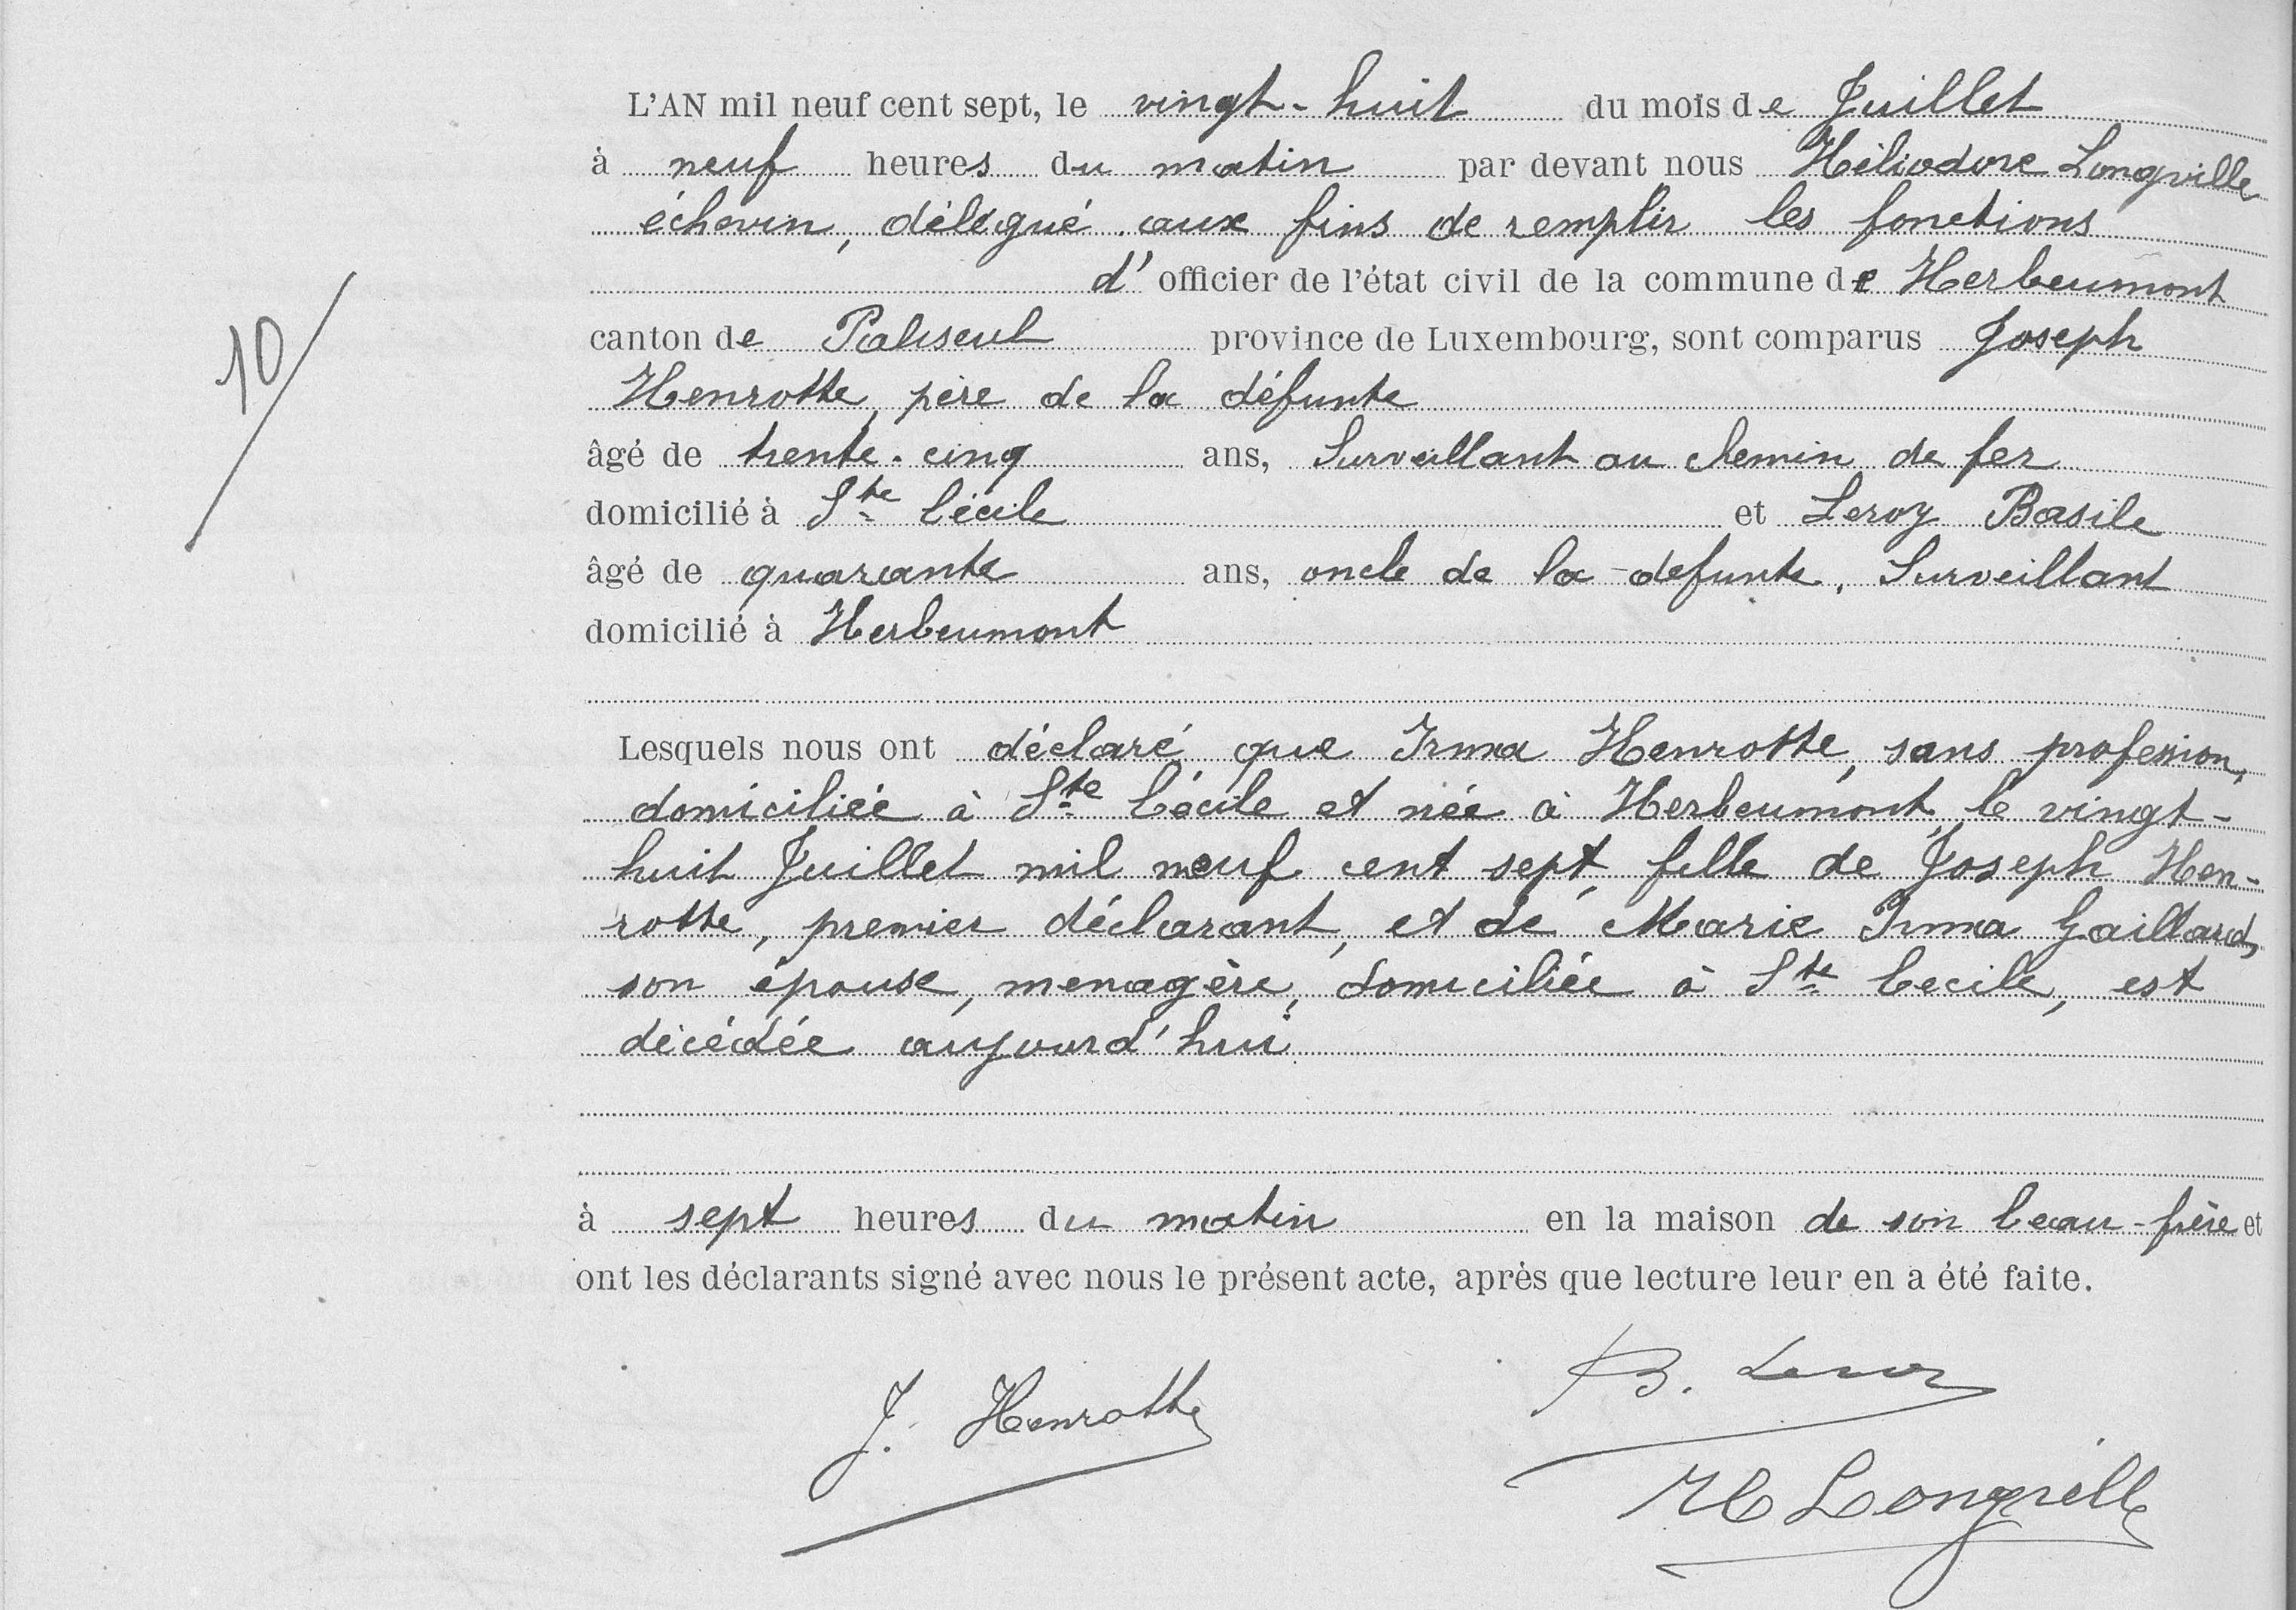 L'AN mil neuf cent sept, le vingt-huit du mois de Juillet
à neuf heures du matin par devant nous Héliodore Longville
échevin, délégué aux fins de remplir les fonctions
d' officier de l'état civil de la commune de Herbeumont
10
canton de Paliseul province de Luxembourg, sont comparus Joseph
Henrotte, père de la défunte
âgé de trente-cinq ans, Surveillant au chemin de fer
domicilié à Ste Cécile et Leroy Basile
âgé de quarante ans, oncle de la défunte, Surveillant
domicilié à Herbeumont
Lesquels nous ont déclaré que Irma Henrotte, sans profession,
domiciliée à Ste Cécile et née à Herbeumont, le vingt-
huit Juillet mil neuf cent sept, fille de Joseph Hen-
rotte, premier déclarant, et de Marie Irma Gaillard,
son épouse, menagère, domiciliée à Ste Cecile, est
décédée aujourd'hui
à sept heures du matin en la maison de son beau-frère et
ont les déclarants signé avec nous le présent acte, après que lecture leur en a été faite.
B. Leroy
J. Henrotte
H Longville